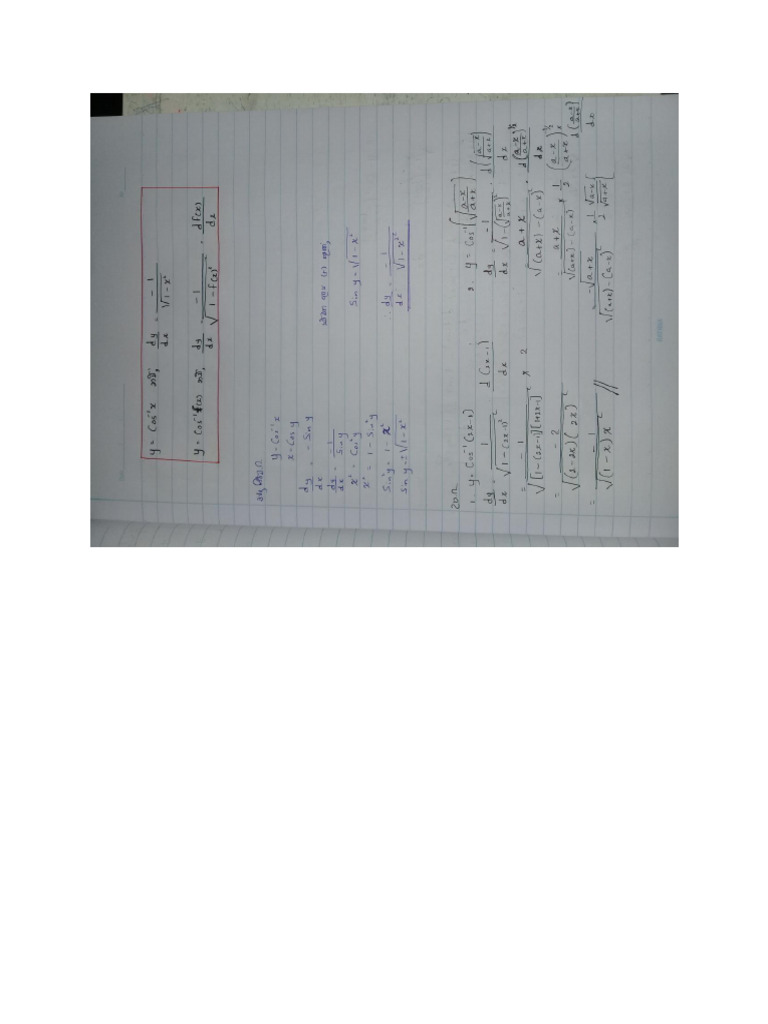 y = Cos⁻¹x නම්, dy/dx = -1/√(1-x²)
y = Cos⁻¹f(x) නම්, dy/dx = -1/√(1-f(x)²) · df(x)/dx
y = Cos⁻¹x
x = Cos y
dy/dx = - Sin y
dy/dx = -1/Sin y
x² = Cos²y
x² = 1 - Sin²y
Sin²y = 1 - x²
Sin y = ±√(1-x²)
Sin y = √(1-x²)
∴ dy/dx = -1/√(1-x²)
1. y = Cos⁻¹(2x-1)
dy/dx = 1/√(1-(2x-1)²) d(2x-1)/dx
= -1/√([1-(2x-1)][1+2x-1]) × 2
= -2/√((2-2x)(2x))
= -1/√((1-x)x) //
2. y = Cos⁻¹{√((a-x)/(a+x))}
dy/dx = -1/√(1-(√((a-x)/(a+x)))²) · d(√((a-x)/(a+x)))/dx
a+x/√((a+x)-(a-x)) · d((a-x)/(a+x))^½/dx
a+x/√((a+x)-(a-x)) × 1/2 ((a-x)/(a+x))^-½ × d((a-x)/(a+x))/dx
-√(a+x)/√((a+x)-(a-x))